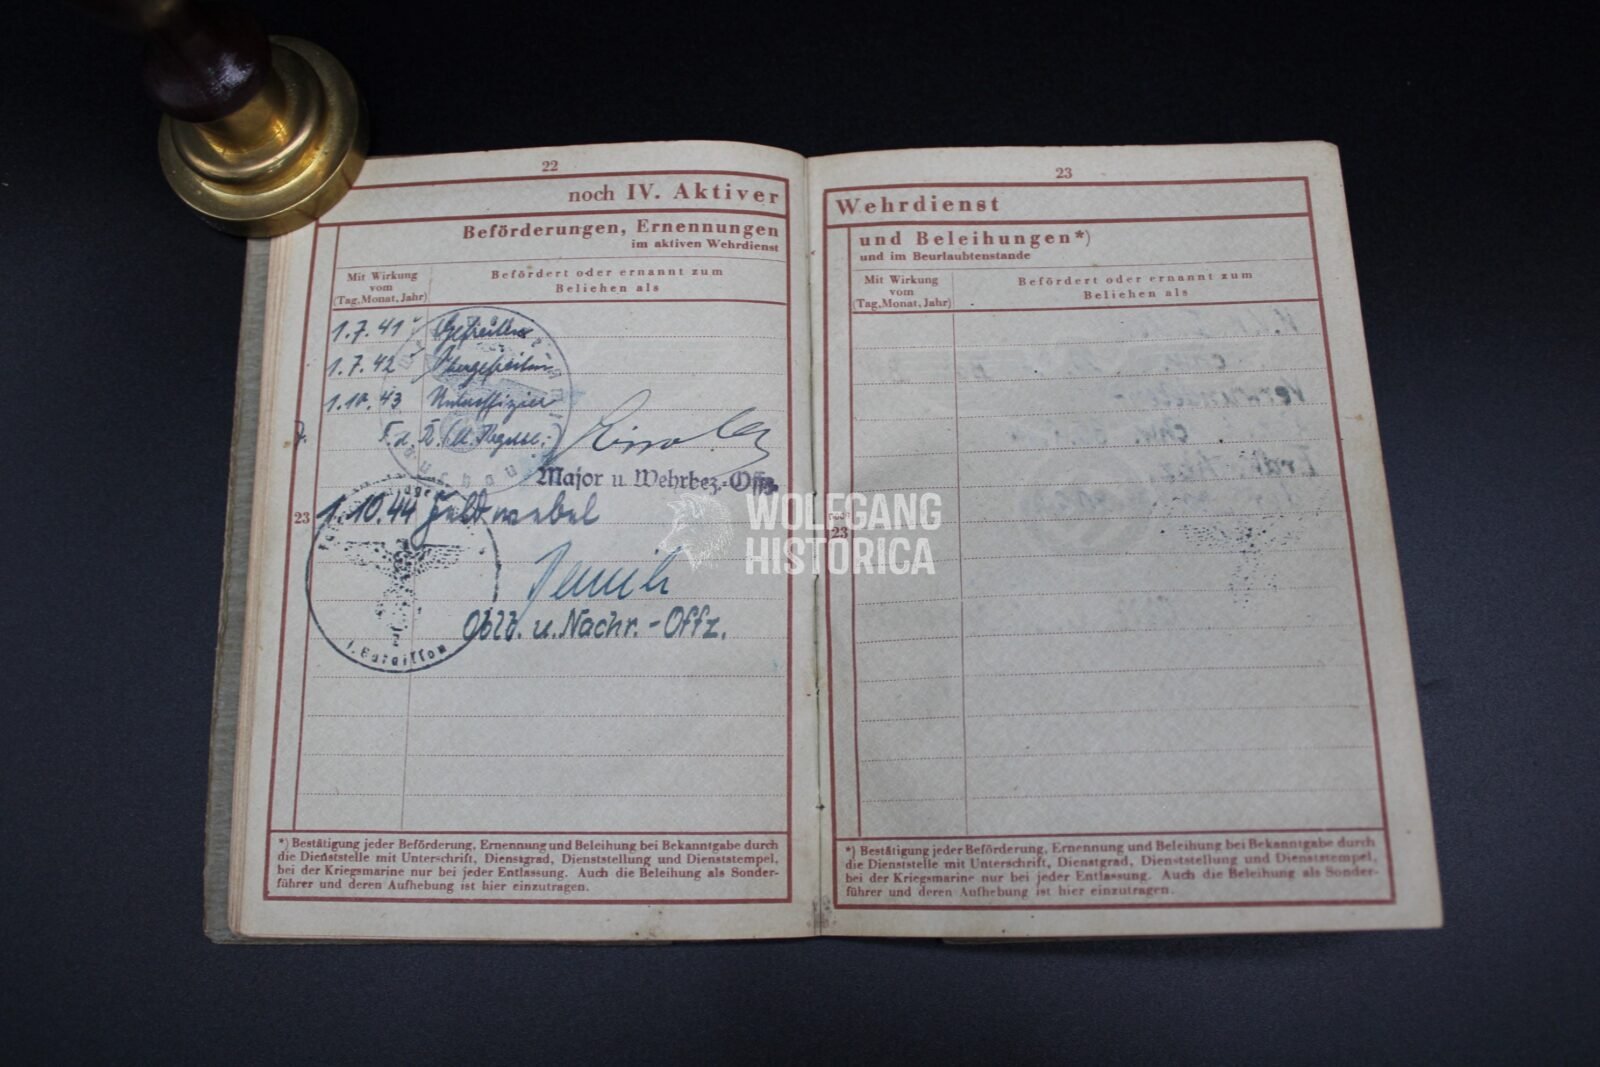 22
noch IV. Aktiver
Beförderungen, Ernennungen
im aktiven Wehrdienst
Mit Wirkung
vom
(Tag, Monat, Jahr)
Befördert oder ernannt zum
Beliehen als
1.7.41 Gefreiter
1.7.42 Obergefreiter
1.10.43 Unteroffizier
F.d.R.
Major u. Wehrbez.-Offz.
23
1.10.44 Feldwebel
Oblt. u. Nachr.-Offz.
I. Bataillon
*) Bestätigung jeder Beförderung, Ernennung und Beleihung bei Bekanntgabe durch
die Dienststelle mit Unterschrift, Dienstgrad, Dienststellung und Dienststempel,
bei der Kriegsmarine nur bei jeder Entlassung. Auch die Beleihung als Sonder-
führer und deren Aufhebung ist hier einzutragen.
23
Wehrdienst
und Beleihungen*)
und im Beurlaubtenstande
Mit Wirkung
vom
(Tag, Monat, Jahr)
Befördert oder ernannt zum
Beliehen als
noch
23
*) Bestätigung jeder Beförderung, Ernennung und Beleihung bei Bekanntgabe durch
die Dienststelle mit Unterschrift, Dienstgrad, Dienststellung und Dienststempel,
bei der Kriegsmarine nur bei jeder Entlassung. Auch die Beleihung als Sonder-
führer und deren Aufhebung ist hier einzutragen.
WOLFGANG
HISTORICA